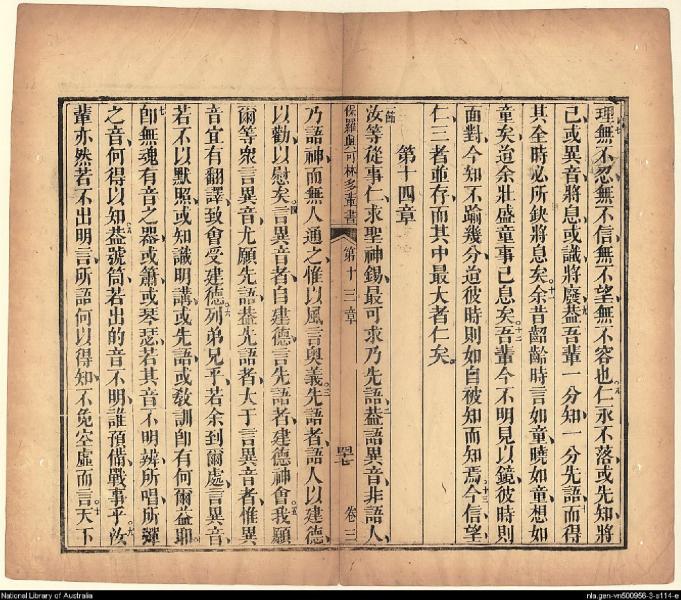 理無不忍無不信無不望無不容也仁永不落或先知將
己或異音將息或識將廢葢吾輩一分知一分先語而得
其全時必所缺將息矣余昔齠齡時言如童曉如童想如
童矣迨余壯盛童事已息矣吾輩今不明見以鏡彼時則
面對今知不踰幾分迨彼時則如自被知而知焉今信望
仁三者並存而其中最大者仁矣
第十四章
汝等從事仁求聖神錫最可求乃先語葢語異音非語人
保羅與可林多輩書 第十三章 卷三
乃語神而無人通之惟以風言奧義先語者語人以建德
以勸以慰矣言異音者自建德言先語者建德神會我願
爾等衆言異音尤願先語葢先語者大于言異音者惟異
音宜有翻譯致會受建德列弟兄乎若余到爾處言異音
若不以默照或知識明講或先語或教訓卽有何爾益耶
卽無魂有音之器或簫或琴瑟若其音不明辨所唱所彈
之音何得以知葢號筒若出的音不明誰預備戰事乎汝
輩亦然若不出明言所語何以得知不免空虛而言天下
National Library of Australia
nla.gen-vn500956-3-s114-e